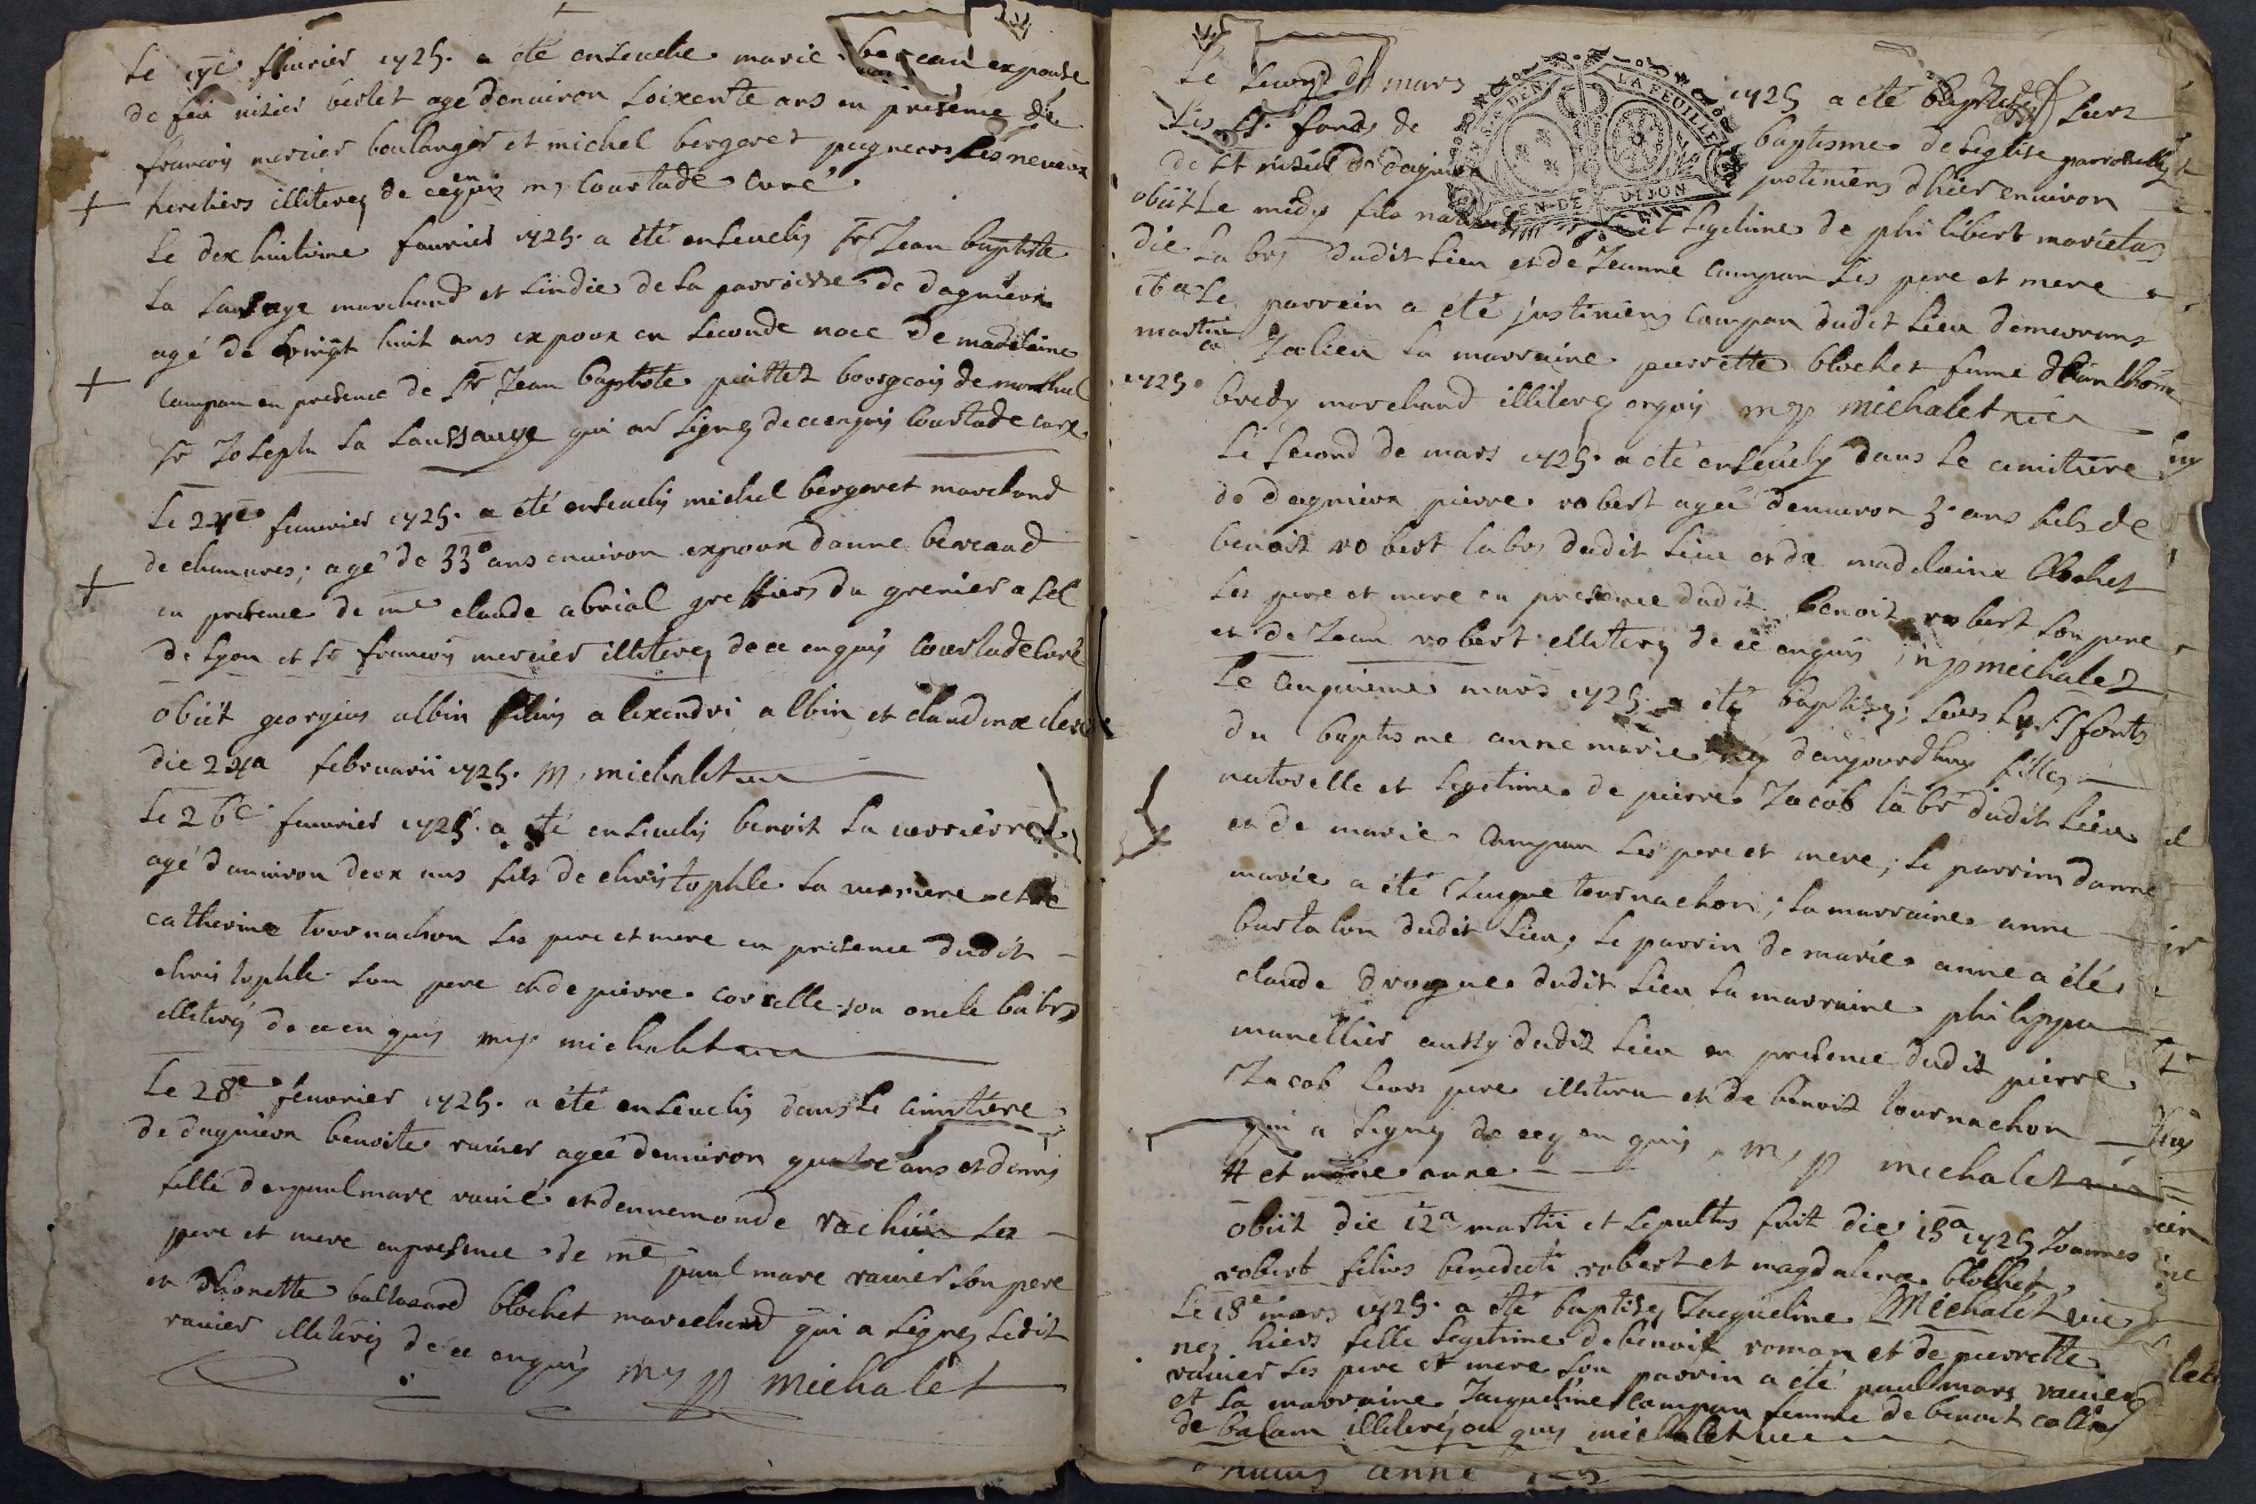 Le 17e feurier 1725. a été enseuelie marie berceau expouse
de feu nisier berlet age denuiron soixente ans en presence de
françois mercier boulanger et michel bergeret pegneurs ses neueux
heretiers illiterez de ce enquis m, Courtade curé
Le dix huitieme feurier 1725. a été enseuelis sr Jean baptiste
La Saulsaye marchand et sindic de la parroisse de dagnieux
agé de huit ans expoux en seconde noce de madelaine
campan en presence de Sr Jean baptiste piittet bourgeois de monthuel
sr Joseph La Saussauye qui ont signez de ce enquis Courtade curé
Le 24e feurier 1725. a été enseuelis michel bergeret marchand
de chanures; agé de 33 ans enuiron expoux danne berceaud
en presence de me claude abrial greffiers du grenier a sel
de Lyon et sr francois mercier illiterez de ce enquis Courtade curé
obiit georgius albin filius alexendri albin et claudinæ
die 24a februarii 1725. m, michalet
Le 26e feurier 1725. a été enseuelis benoit La verrierre
agé denuiron deux ans fils de christophle La verriere et de
catherine tournachon ses pere et mere en presence dudit
christophle son pere et de pierre corcelle son oncle labrs
illiterés de ce enquis m p michalet
Le 28e feurier 1725. a été enseuelis dans le cimitiere
de dagnieux benoite rauier ageé denuiron quatre ans et demis
fille de paul marc rauié et dennemonde vachon ses
pere et mere en presence de me paul marc rauier son pere
et dhonette baltazard blochet marchand qui a signez ledit
rauier illiterés de ce enquis m p michalet
Le second de mars 1725 a eté baptisez sur
Les st. fonds de baptisme de Leglise parroissielle
de st nisier de dagnieux justiniens dhier enuiron
Le midy fils naturel et Legitime de philibert marietas
La brs dudit Lieu et de Jeanne campan ses pere et mere
Le parrein a été justiniens campan dudit Lieu demeurans
a Jalieu La marraine pierrette blochet fame
bredy marchand illiterez enquis m p michalet vic
obiit
die
16a
martii
1725.
Le second de mars 1725. a été enseuely dans le cimitiere
de dagnieux pierre robert ageé denuiron 3. ans fils de
benoit robert labrs dudit Lieu et de madelaine blochet
ses pere et mere en presence dudit benoit robert son pere
et de Jean robert illiterez de ce enquis m p michalet
Le cinquieme mars 1725. a été baptisez; sur Les ss fonts
du baptisme anne marie nez daujourdhuy filles
naturelle et Legitime de pierre Jacob labr dudit Lieu
et de marie campan ses pere et mere; Le parrin danne
marie a été Jacque tournachon; La marraine anne
bartalon dudit Lieu; Le parrin de marie anne a été
claude drogue dudit Lieu La marraine philippa
manellier aussy dudit Lieu en presence dudit pierre
Jacob leurs pere illitere et de benoit tournachon
qui a signez de ce enquis, m, p michalet vic
# et marie anne
obiit die 12a martii et sepultus fuit die 13a 1725 Joannes
robert filius benedicti robert et magdalenæ blochet
michalet vic
Le 18e mars 1725. a été baptisez Jacqueline
nez hiers fille Legitime de benoit roman et de pierrette
rauier ses pere et mere son parrin a été paul marc rauier
et La marraine Jacqueline campan femme de benoit collet
de balam illiterés enquis michalet vic
anne